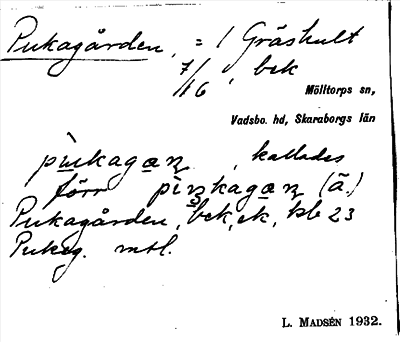 Pukagården, = 1 Gräshult
7/16, bek
Mölltorps sn,
Vadsbo. hd, Skaraborgs län
kallades
förr (ā.)
Pukagården, bek, ek, kb 23
Pukeg. mtl.
L. MADSÉN 1932.